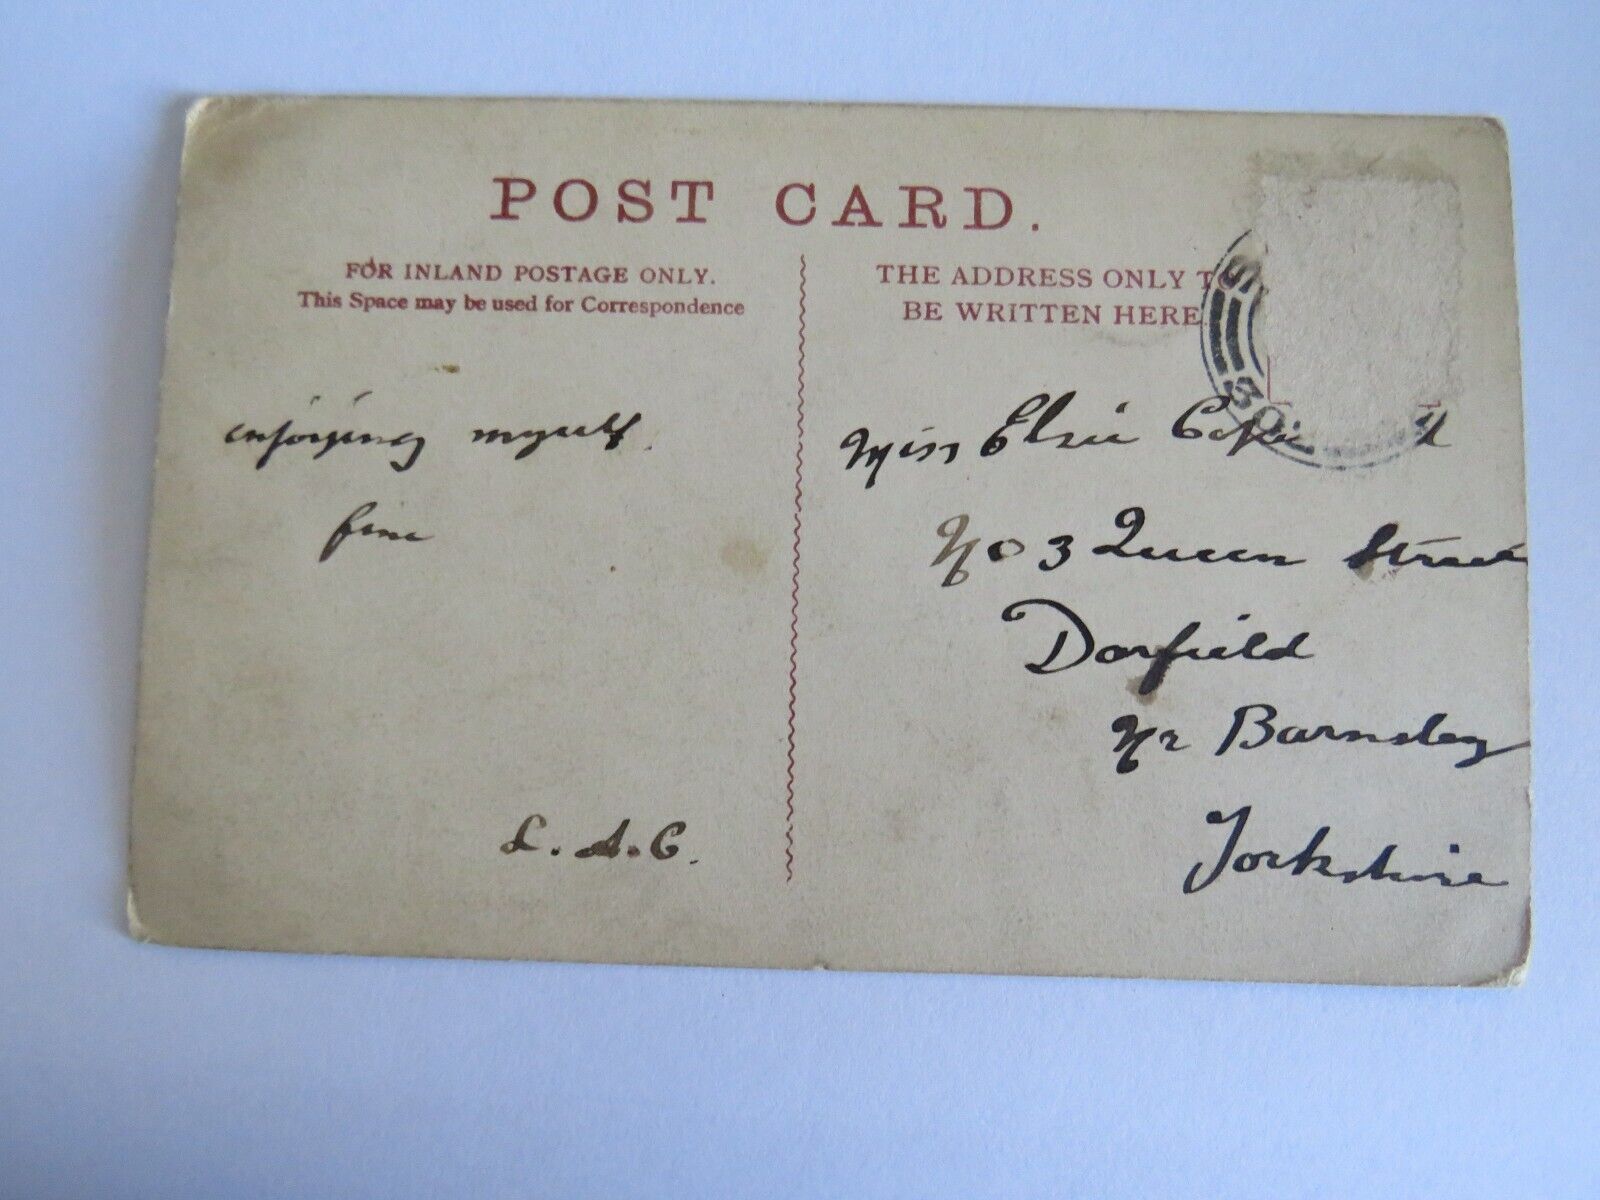 POST CARD.
FOR INLAND POSTAGE ONLY.
This Space may be used for Correspondence
enjoying myself.
fine
L. A. C.
THE ADDRESS ONLY TO
BE WRITTEN HERE
Miss Elsie
No 3 Queen Street
Darfield
Nr Barnsley
Yorkshire